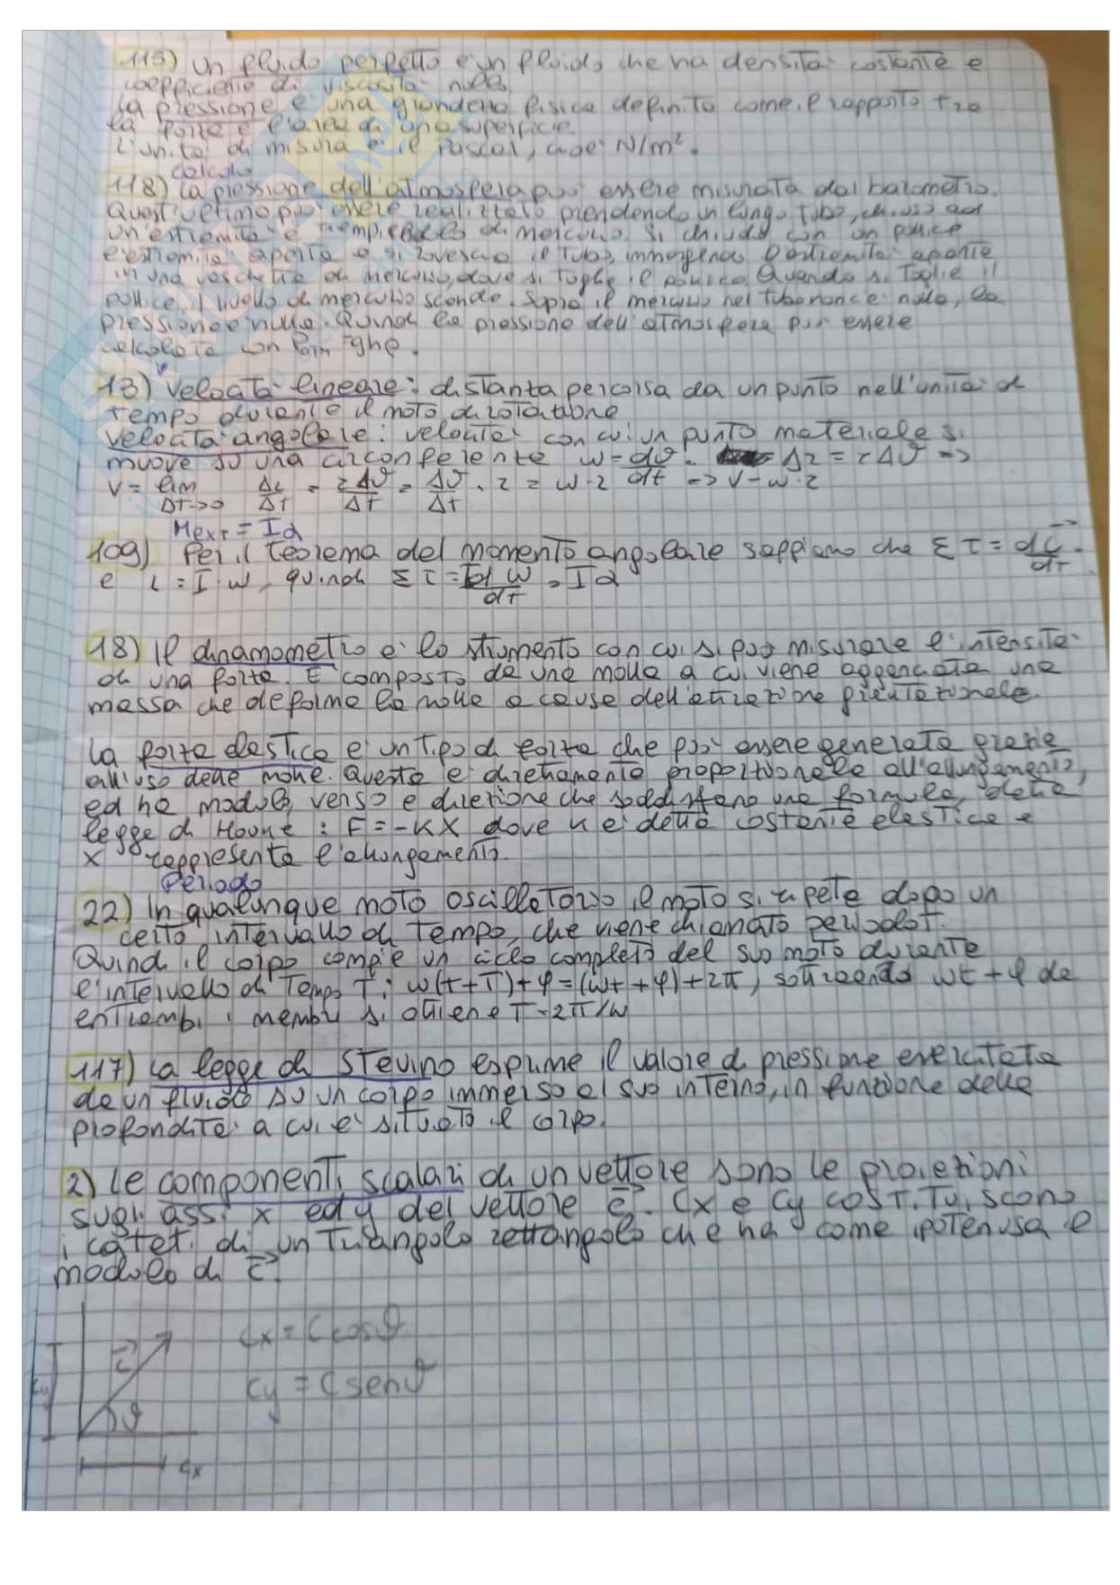 115) Un fluido perfetto è un fluido che ha densità costante e
coefficiente di viscosità nullo
La pressione è una grandezza fisica definita come il rapporto tra
la forza e l'area di una superficie
L'unità di misura è il Pascal, cioè N/m².
calcolo
118) La pressione dell'atmosfera può essere misurata dal barometro.
Quest'ultimo può essere realizzato prendendo un lungo tubo, chiuso ad
un'estremità e riempiendolo di mercurio. Si chiude con un pollice
l'estremità aperta e si rovescia il tubo, immergendo l'estremità aperta
in una vaschetta di mercurio, dove si toglie il pollice. Quando si toglie il
pollice, il livello di mercurio scende. Sopra il mercurio nel tubo non c'è nulla, la
pressione è nulla. Quindi la pressione dell'atmosfera può essere
calcolata con
13) Velocità lineare: distanza percorsa da un punto nell'unità di
tempo durante il moto di rotazione
Velocità angolare: velocità con cui un punto materiale si
muove su una circonferenza ω = dϑ/dt. Δr = rΔϑ =>
V = lim ΔT->0 Δr/ΔT = rΔϑ/ΔT = Δϑ/ΔT · r = ω·r => V = ω·r
Mext = Iα
109) Per il teorema del momento angolare sappiamo che Στ = dL/dt.
e L = I·ω, quindi Στ = I dω/dt = Iα
18) Il dinamometro è lo strumento con cui si può misurare l'intensità
di una forza. È composto da una molla a cui viene agganciata una
massa che deforma la molla a causa dell'attrazione gravitazionale.
La forza elastica è un tipo di forza che può essere generata grazie
all'uso delle molle. Questa è direttamente proporzionale all'allungamento,
ed ha modulo, verso e direzione che soddisfano una formula, della
legge di Hooke: F = -KX dove K è detta costante elastica e
X rappresenta l'allungamento.
Periodo
22) In qualunque moto oscillatorio il moto si ripete dopo un
certo intervallo di tempo, che viene chiamato periodo T.
Quindi il corpo compie un ciclo completo del suo moto durante
l'intervallo di tempo T: ω(t+T)+φ=(ωt+φ)+2π, sottraendo ωt+φ da
entrambi i membri si ottiene T=2π/ω
117) La legge di Stevino esprime il valore di pressione esercitata
da un fluido su un corpo immerso al suo interno, in funzione della
profondità a cui è situato il corpo.
2) Le componenti scalari di un vettore sono le proiezioni
sugli assi x ed y del vettore c⃗. Cx e Cy costituiscono
i cateti di un triangolo rettangolo che ha come ipotenusa il
modulo di c⃗.
Cx = C cosϑ
c⃗
Cy = C senϑ
Cy
ϑ
Cx